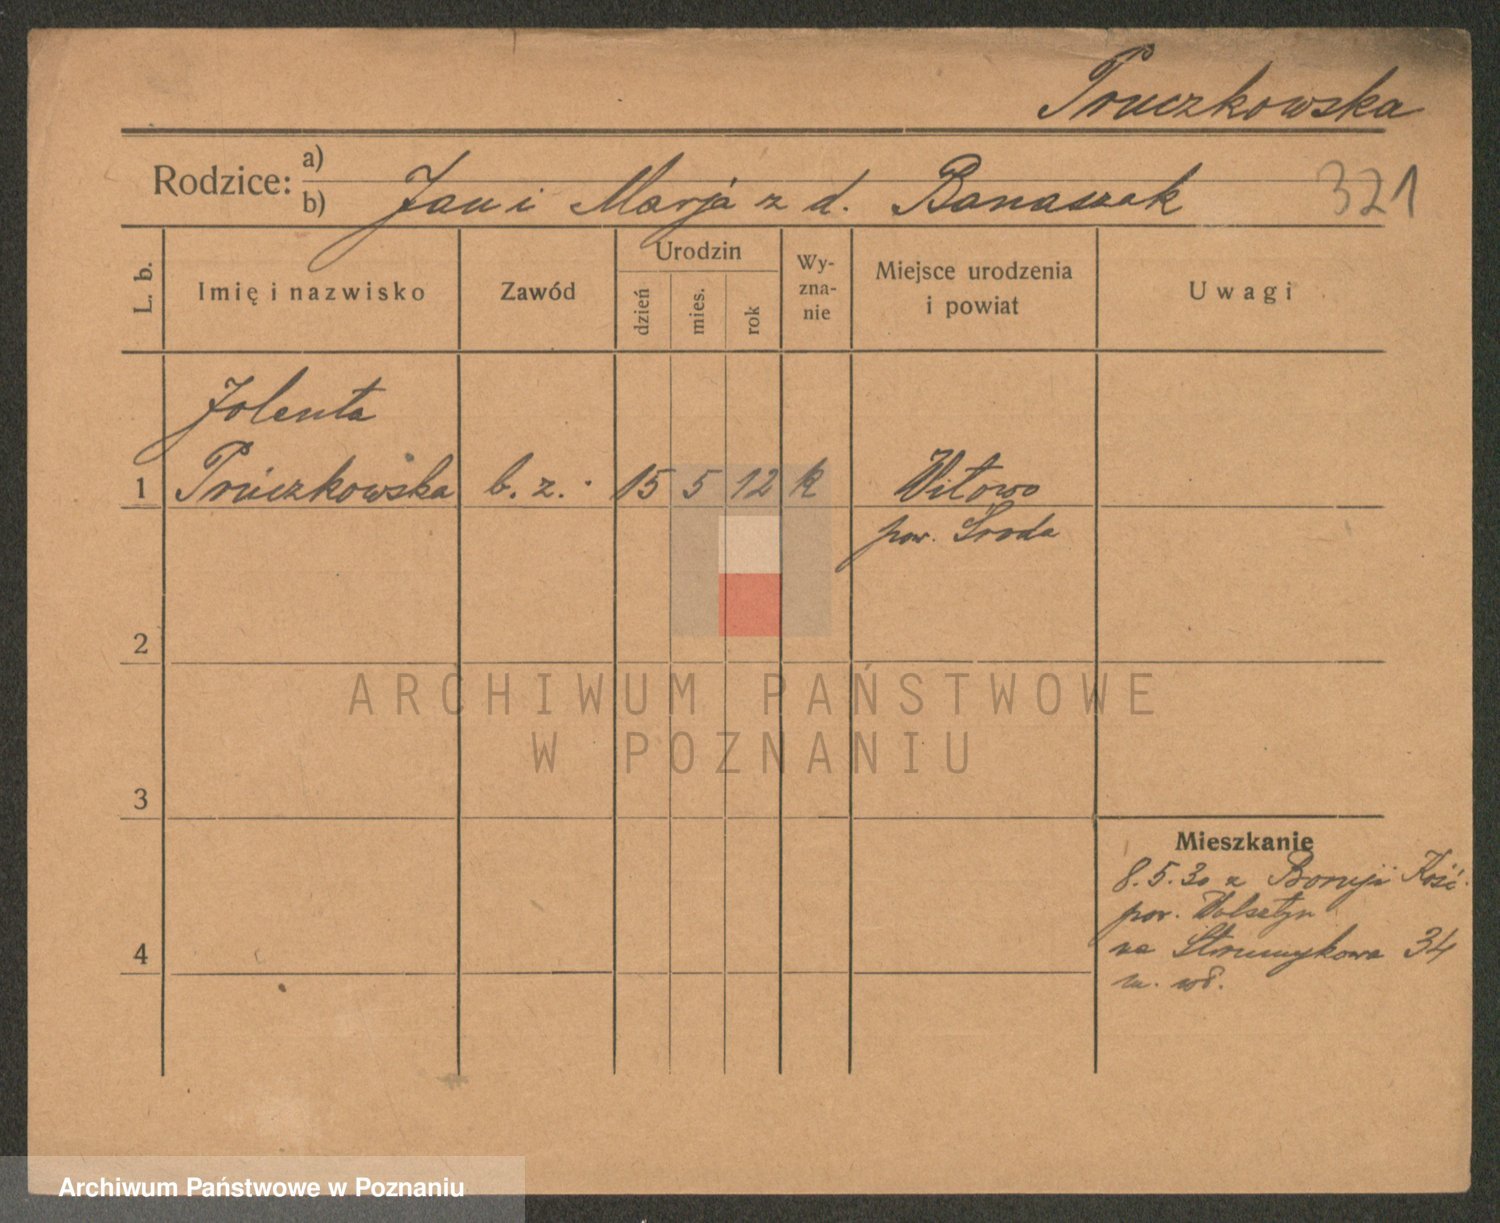 Pruczkowska
Rodzice: a)
b) Jan i Marja z d. Banaszak 321
L. b. Imię i nazwisko Zawód Urodzin dzień mies. rok Wy-zna-nie Miejsce urodzenia i powiat Uwagi
Jolenta
1 Pruczkowska b. z. 15 5 12 k Witowo
pow. Środa
2
ARCHIWUM PAŃSTWOWE
W POZNANIU
3
Mieszkanie
8.5.30 z Boruji Kość.
pow. Wolsztyn
4 na Strumykowa 34
Archiwum Państwowe w Poznaniu